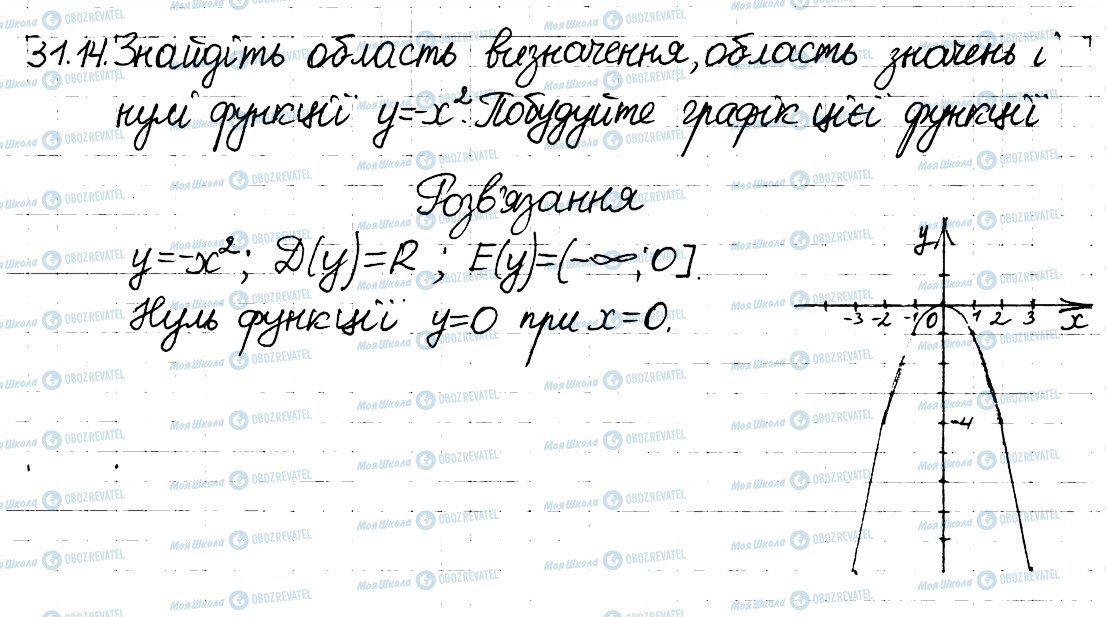 31.14. Знайдіть область визначення, область значень і
нулі функції y=-x². Побудуйте графік цієї функції
Розв'язання
y=-x²; D(y)=R; E(y)=(-∞; 0].
Нуль функції y=0 при x=0.
y
-3 -2 -1 0 1 2 3 x
-4
Моя Школа OBOZREVATEL